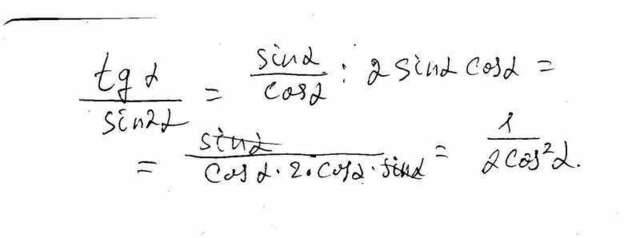 tg α / sin2α = sinα / cosα : 2 sinα cosα =
= sinα / cosα · 2 · cosα · sinα = 1 / 2cos²α.